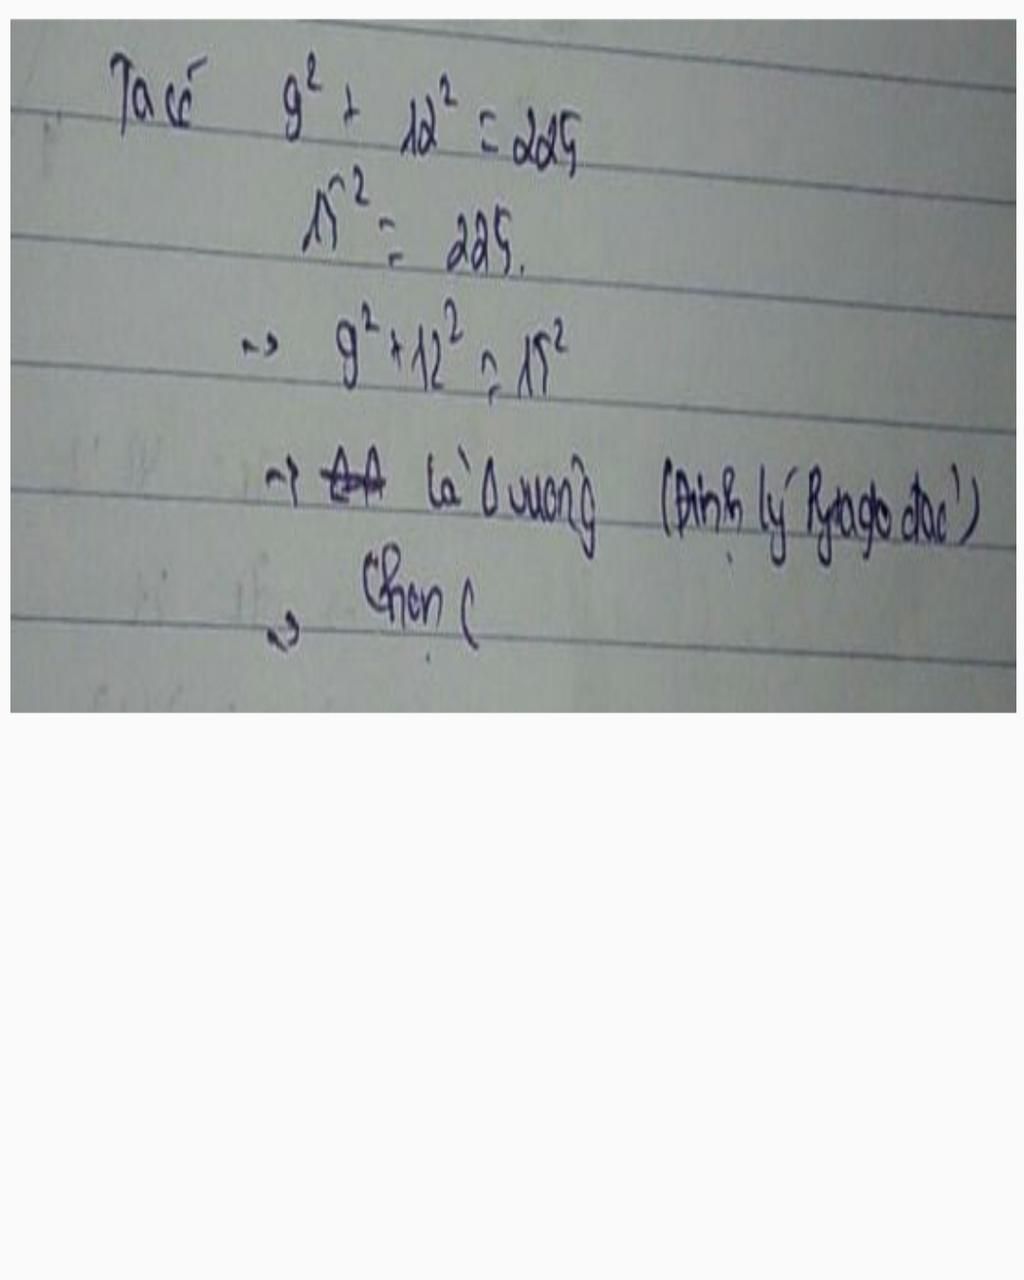 Ta có 9² + 12² = 225
15² = 225.
→ 9² + 12² = 15²
→ là Δ vuông (Định lý Pytago đảo)
→ Chọn C